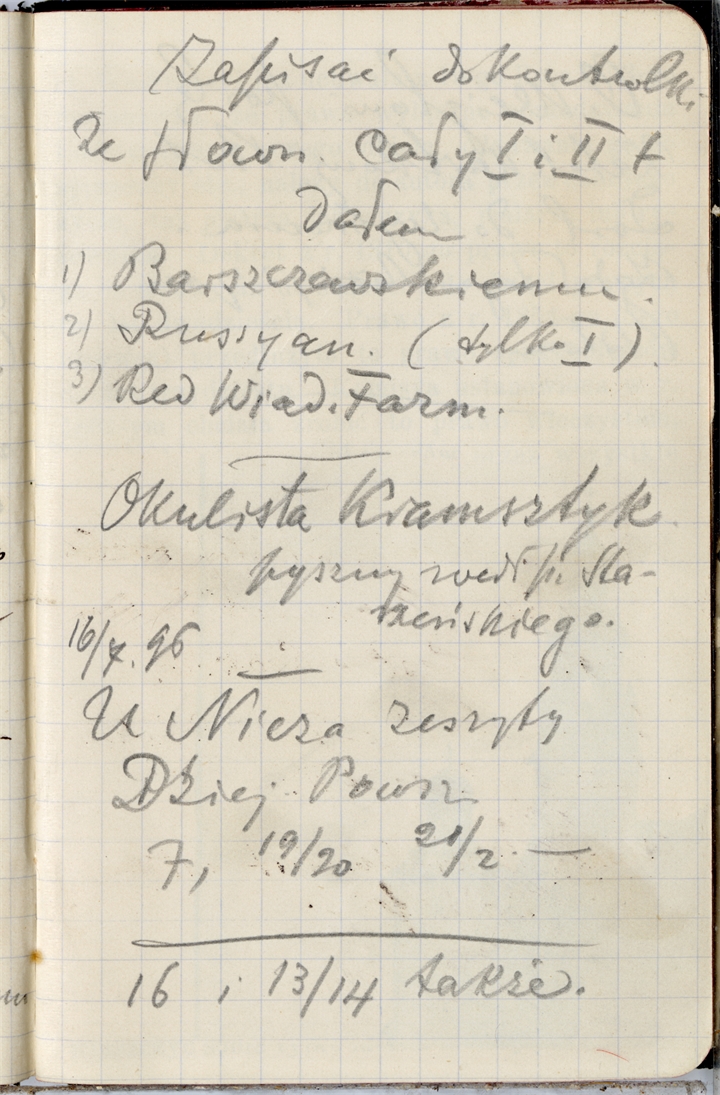 Zapisać do kontrolki
że słown. cały I i II t
dałem
1) Barszczewskiemu.
2) Russyan. (tylko I).
3) Red Wiad. Farm.
Okulista Kramsztyk
pyszny wedł p. Sta-
rzeńskiego.
16/7. 96
U Niera zeszyty
Dziej Powsz
7, 19/20 21/2 —
16 i 13/14 także.